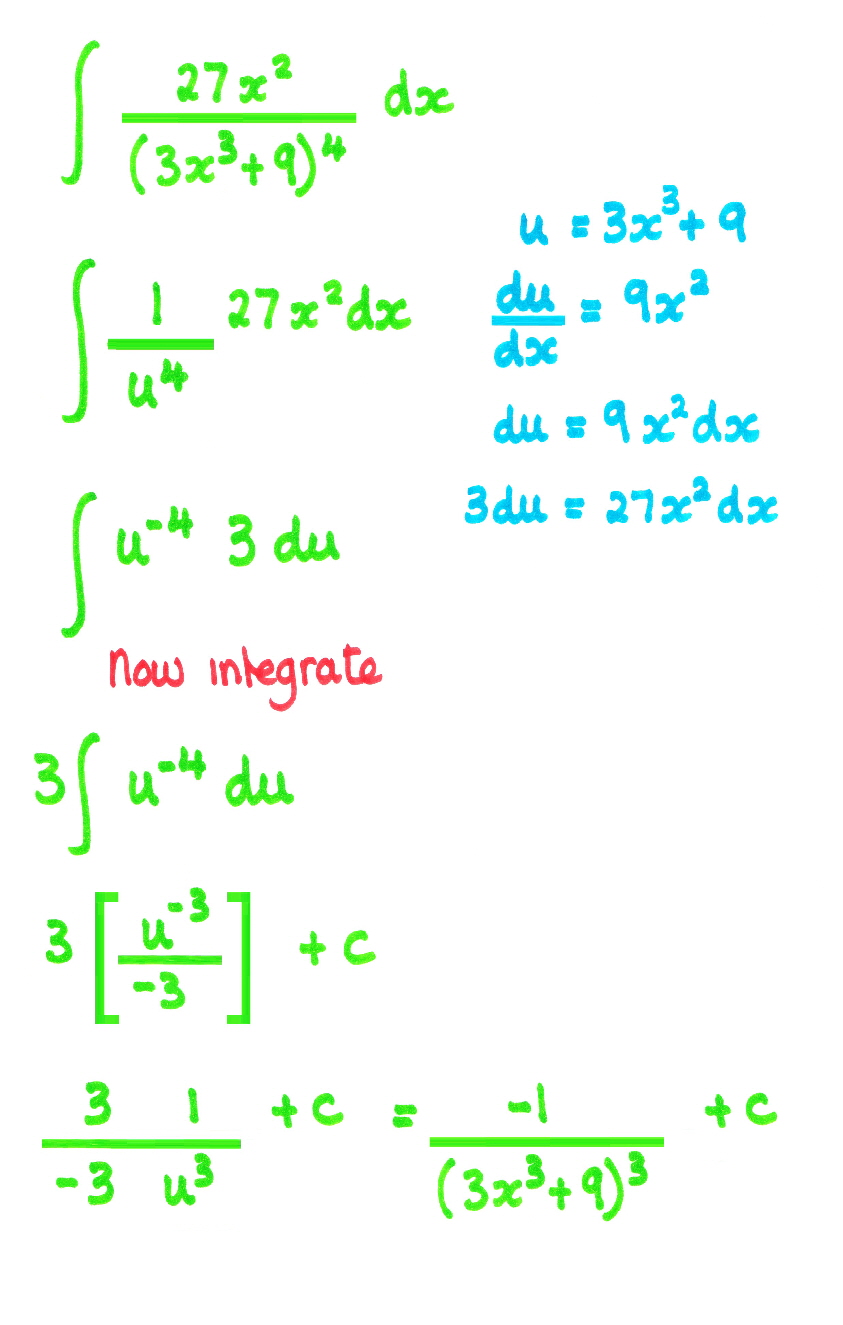 ∫ 27x² / (3x³+9)⁴ dx
u = 3x³+9
∫ 1/u⁴ 27x²dx
du/dx = 9x²
du = 9x²dx
3du = 27x²dx
∫ u⁻⁴ 3 du
Now integrate
3∫ u⁻⁴ du
3 [u⁻³ / -3] + c
3 1 / -3 u³ + c = -1 / (3x³+9)³ + c